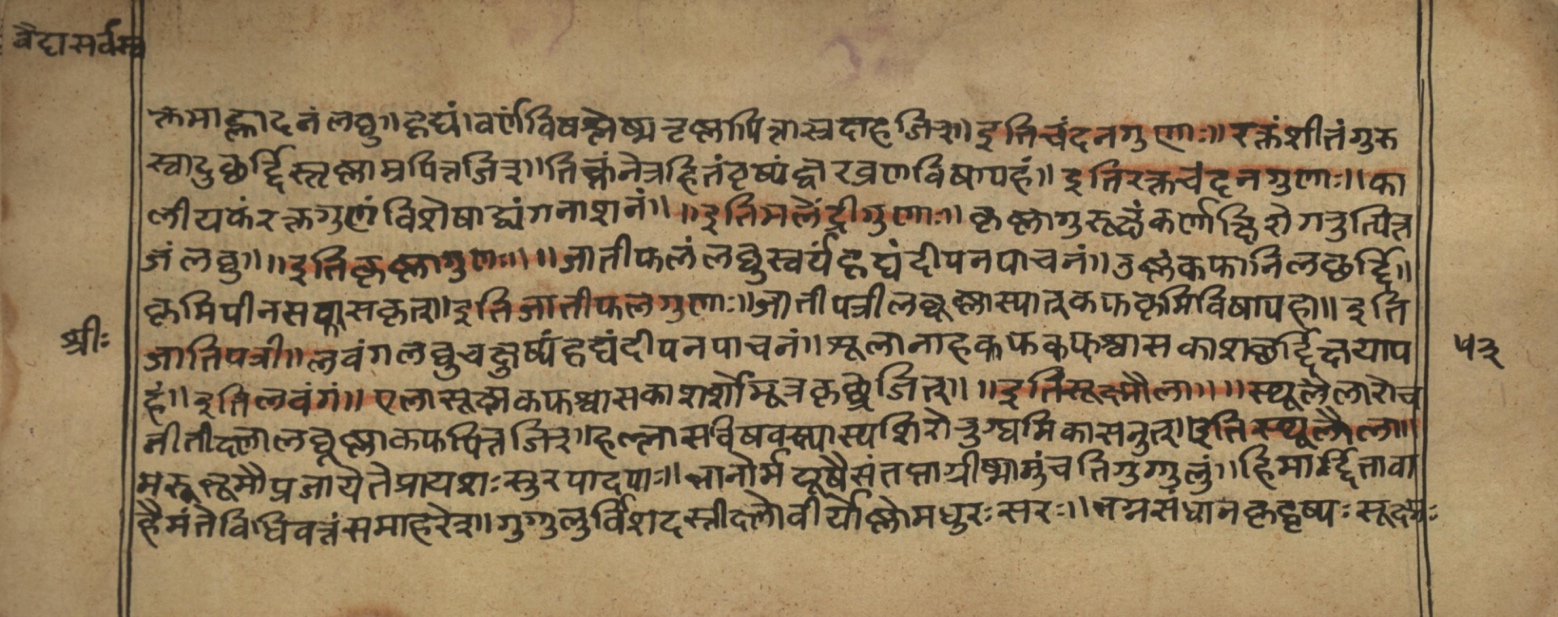 वैद्यसर्वस्व
क्तमाह्लादनं लघु॥ हृद्यं। वर्ण्यं विषश्लेष्म तृष्णापित्तास्रदाहजित्॥ इति चंदनगुणाः॥ रक्तं शीतं गुरु
स्वादु छर्दि स्तृष्णाम्रपित्तजित्॥ तिक्तं नेत्रहितं वृष्यं ज्वरव्रणविषापहं॥ इति रक्तचंदनगुणाः॥ का
लीयकं रक्तगुणं विशेषाद्व्यंगनाशनं॥ ॥ इति मलेंद्रीगुणाः॥ कृष्णागुरूष्णं कर्णाक्षिरोगनुत्पित्त
जं लघु॥ ॥ इति कृष्णागुणः॥ ॥ जातीफलं लघु स्वर्यं हृद्यं दीपनपाचनं॥ उष्णं कफानिलछर्द्दि॥
कृमिपीनसश्वासकृत्॥ इति जातीफलगुणाः॥ जातीपत्री लघूष्णास्यात् कफकृमिविषापहा॥ इति
श्रीः
जातिपत्री॥ लवंग लघु चक्षुष्यं हृद्यं दीपनपाचनं॥ शूलानाहकफ श्वासकाशछर्द्दिक्षयाप
५३
हं॥ इति लवंगं॥ एला सूक्ष्मा कफश्वासकाशर्शोमूत्रकृछ्रजित्॥ ॥ इति सूक्ष्मैला॥ ॥ स्थूलैला रोच
नी तीक्ष्णा लघूष्णा कफपित्तजित्॥ हल्लासविषवस्त्यास्यशिरोरुग्वमिकासनुत्॥ इति स्थूलैला॥
मरुभूमौ प्रजायेते प्रायशः सुरपादपाः॥ भानोर्मयूषैसंतप्ता ग्रीष्मे मुंचति गुग्गुलुं॥ हिमार्द्दितावा
हैमंते विधिवत्तं समाहरेत्॥ गुगुलुर्विशद स्तीक्ष्णो वीर्योष्णो मधुरः सरः॥ भग्नसंधानकृद्वृष्यः सूक्ष्मः